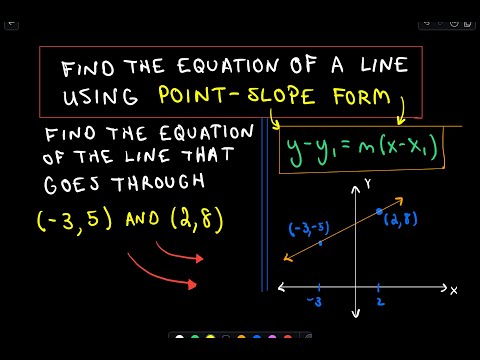 FIND THE EQUATION OF A LINE
USING POINT-SLOPE FORM
FIND THE EQUATION
OF THE LINE THAT
GOES THROUGH
(-3,5) AND (2,8)
y-y₁=m(x-x₁)
Y
(-3,-5)
(2,8)
-3
2
X